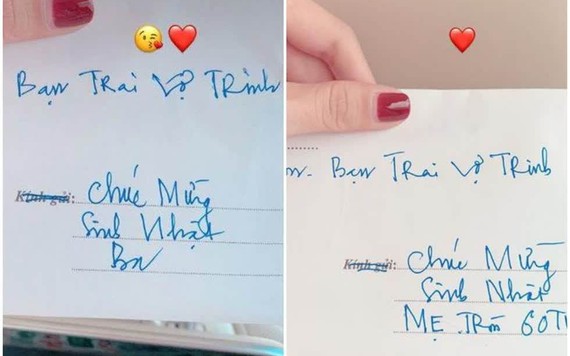 Bạn Trai Vợ Trình
Kính gửi: Chúc Mừng
Sinh Nhật
Ba
Bạn Trai Vợ Trình
Kính gửi: Chúc Mừng
Sinh Nhật
MẸ Tròn 60T